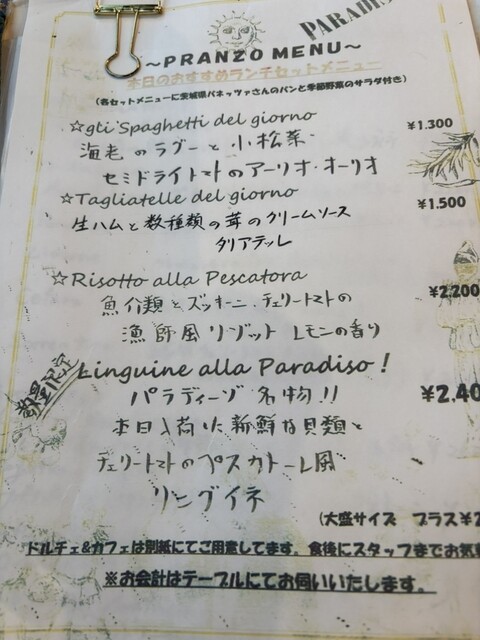 PARADIS
~PRANZO MENU~
本日のおすすめランチセットメニュー
(各セットメニューに茨城県パネッツァさんのパンと季節野菜のサラダ付き)
☆gli Spaghetti del giorno ¥1.300
海老のラグーと小松菜
セミドライトマトのアーリオ・オーリオ
☆Tagliatelle del giorno ¥1.500
生ハムと数種類の茸のクリームソース
タリアテッレ
☆Risotto alla Pescatora ¥2,200
魚介類とズッキーニ・チェリートマトの
漁師風リゾット レモンの香り
数量限定
Linguine alla Paradiso! ¥2,40
パラディーゾ名物!!
本日入荷した新鮮な貝類と
チェリートマトのペスカトーレ風
リングイネ
(大盛サイズ プラス¥2
ドルチェ&カフェは別紙にてご用意してます。食後にスタッフまでお気軽
※お会計はテーブルにてお伺いいたします。